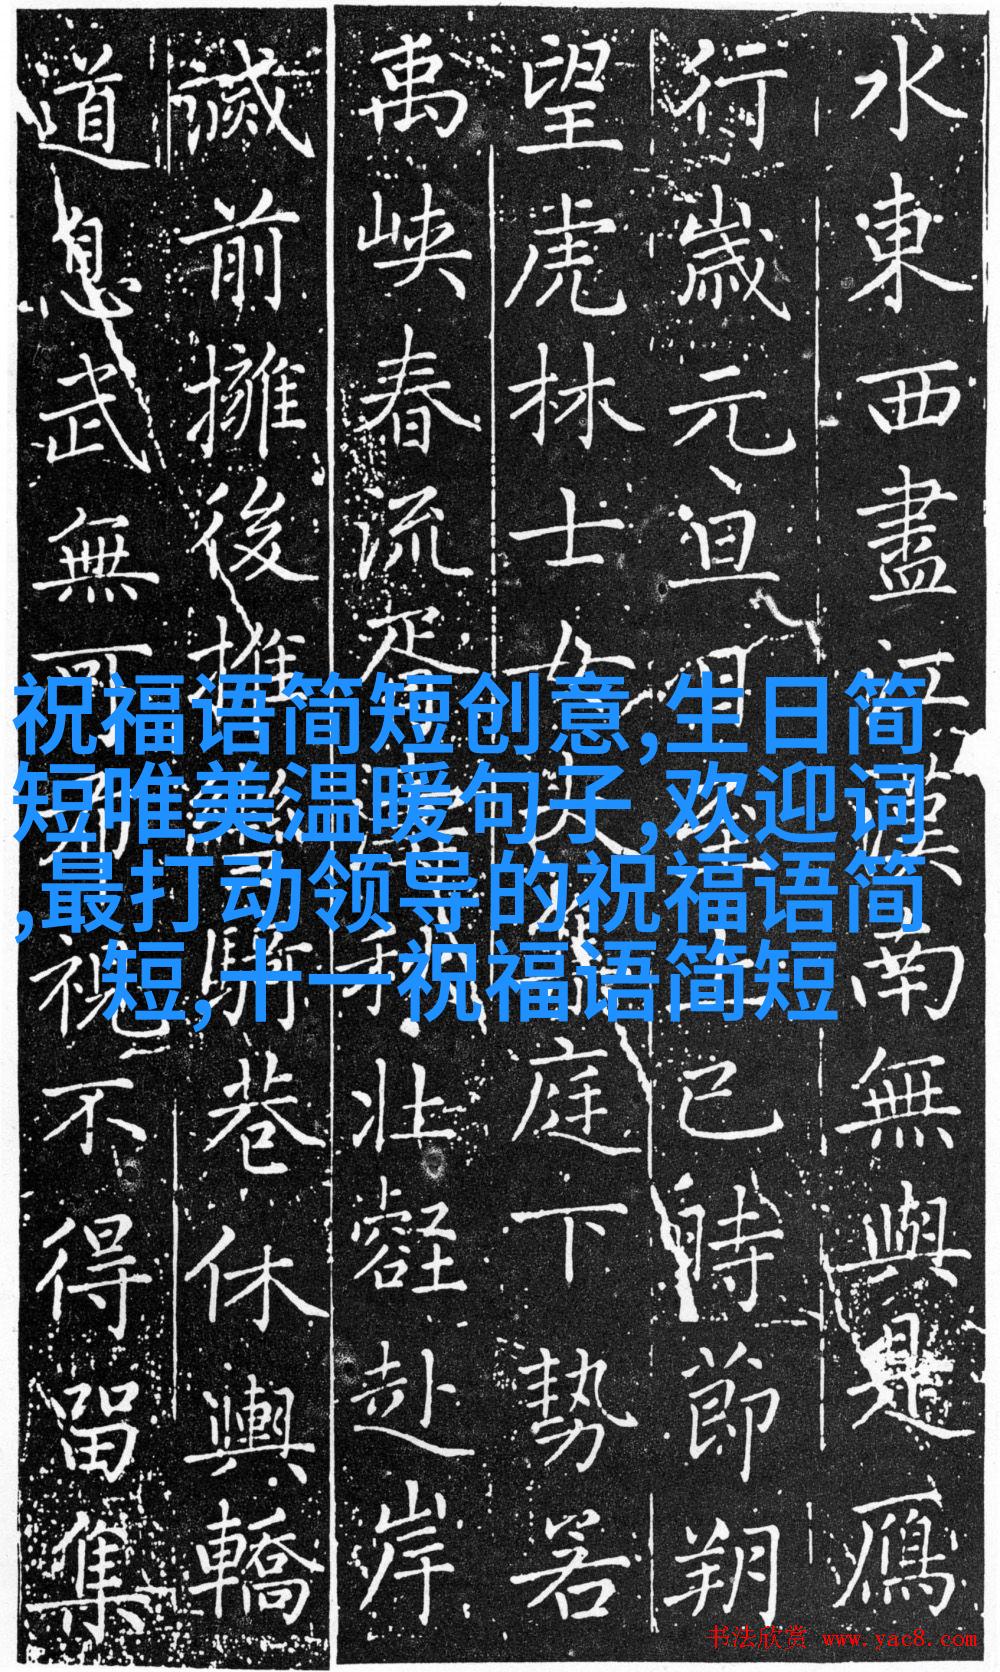 水東西盡江漢南無與是鴈
行歲元旦日
已時節朔
望虎林士女
庭下勢若
禹峽春流
壯叡赴岸
誠前擁後推
騎巷休輿轎
道息武無可
視不得留集
祝福语简短创意,生日简
短唯美温暖句子,欢迎词
,最打动领导的祝福语简
短,十一祝福语简短
书法欣赏 www.yac8.com